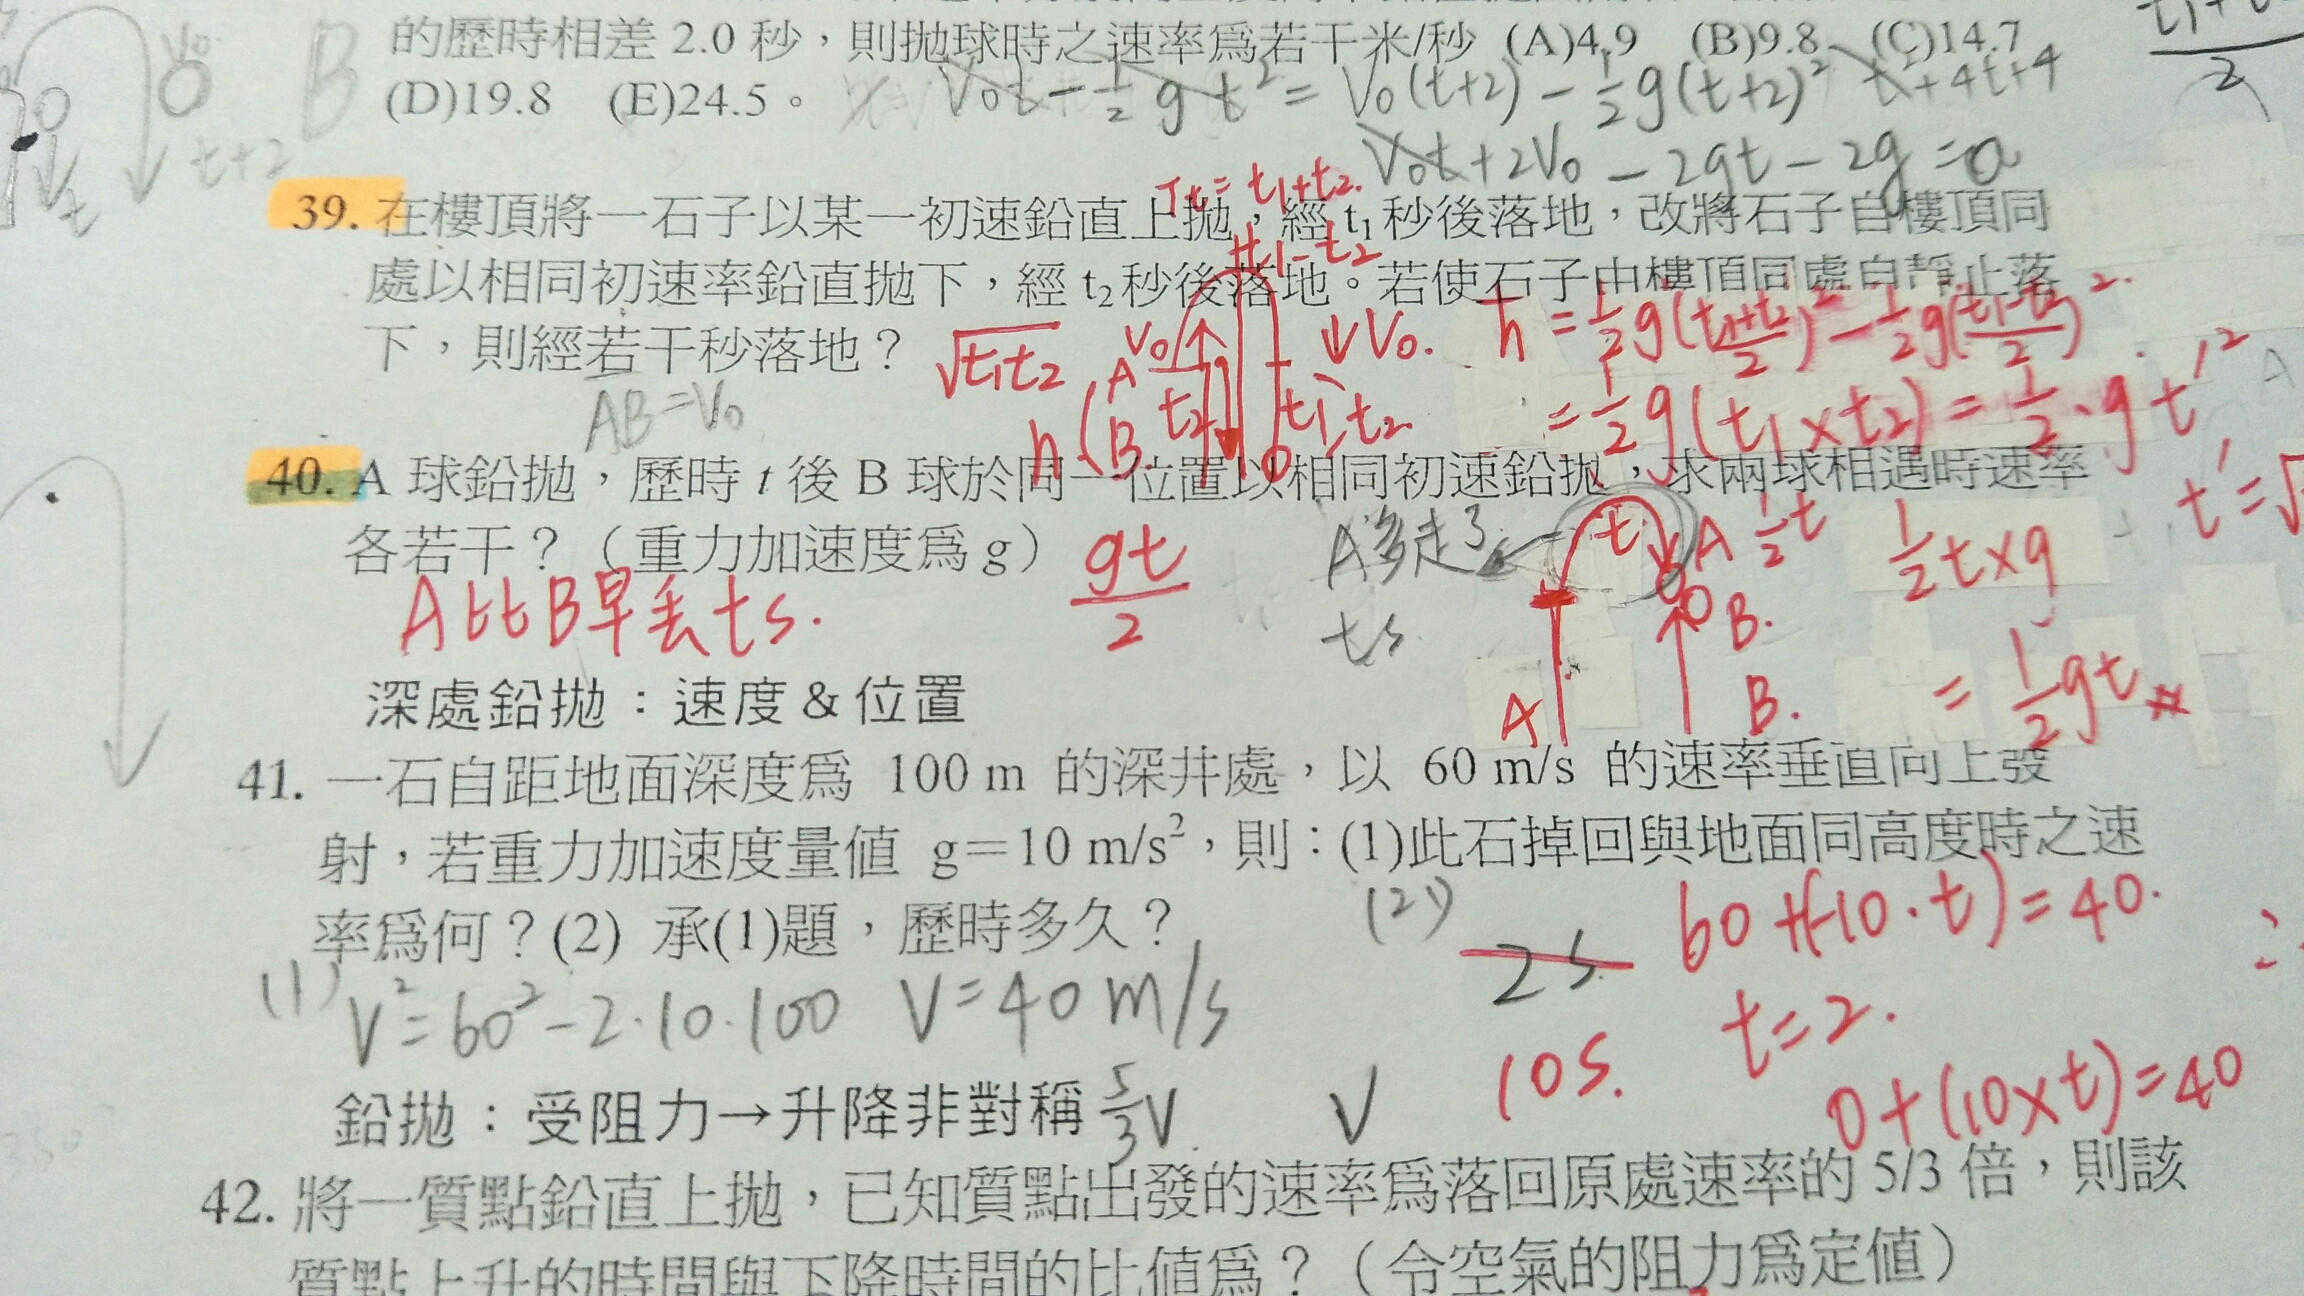 的歷時相差 2.0 秒，則拋球時之速率為若干米/秒 (A)4.9 (B)9.8 (C)14.7
(D)19.8 (E)24.5。
B
V₀
t+2
t
V₀t－½gt²＝V₀(t+2)－½g(t+2)² t²+4t+4
V₀t+2V₀－2gt－2g＝0
2
39. 在樓頂將一石子以某一初速鉛直上拋，經 t₁ 秒後落地，改將石子自樓頂同
處以相同初速率鉛直拋下，經 t₂ 秒後落地。若使石子由樓頂同處自靜止落
下，則經若干秒落地？
√t₁t₂
t₁+t₂
t₁-t₂
V₀ A
↓V₀.
h
B
t₂
t₁, t₂
h＝½g(t₁+t₂/2)²－½g(t₁-t₂/2)²
＝½g(t₁×t₂)＝½·gt'²
t'＝√
AB＝V₀
40. A 球鉛拋，歷時 t 後 B 球於同一位置以相同初速鉛拋，求兩球相遇時速率
各若干？（重力加速度為 g）
gt/2
A比B早丟ts.
A多走了
ts
t
A ½t
½t×g
B.
A
B.
＝½gt
深處鉛拋：速度＆位置
41. 一石自距地面深度為 100 m 的深井處，以 60 m/s 的速率垂直向上發
射，若重力加速度量值 g＝10 m/s²，則：(1)此石掉回與地面同高度時之速
率為何？(2) 承(1)題，歷時多久？
(2)
2s
60+(-10·t)＝40.
(1) V²＝60²－2·10·100 V＝40 m/s
t＝2.
10s.
0+(10×t)＝40
鉛拋：受阻力→升降非對稱 5/3V V
42. 將一質點鉛直上拋，已知質點出發的速率為落回原處速率的 5/3 倍，則該
質點上升的時間與下降時間的比值為？（令空氣的阻力為定值）